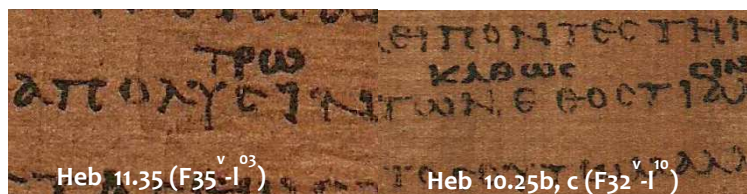 ΤΡΩ
ΑΠΟΛΥCΙΝ
Heb 11.35 (F35v-l03)
ΕΙΠΟΝΤΕCΤΗΝ
ΚΑΘΩC CΙΝ
ΤΩΝ Ε ΘΟCΤΙ
Heb 10.25b, c (F32v-l10)